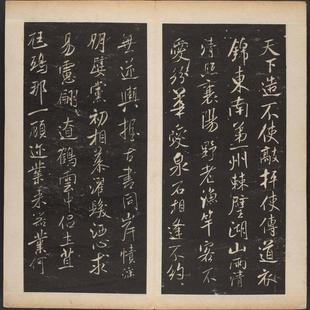 天下造不使敲枰使傳道衣
錦東南第一州棘璧湖山兩清
清照襄陽野老漁竿客不
愛紛華愛泉石相逢不約
無逆輿握古書同岸幘淫
朋嬖黨初相慕濯髮洒心求
易慮翩翩遼鶴雲中侶土苴
尫鴟那一顧邇來器業何